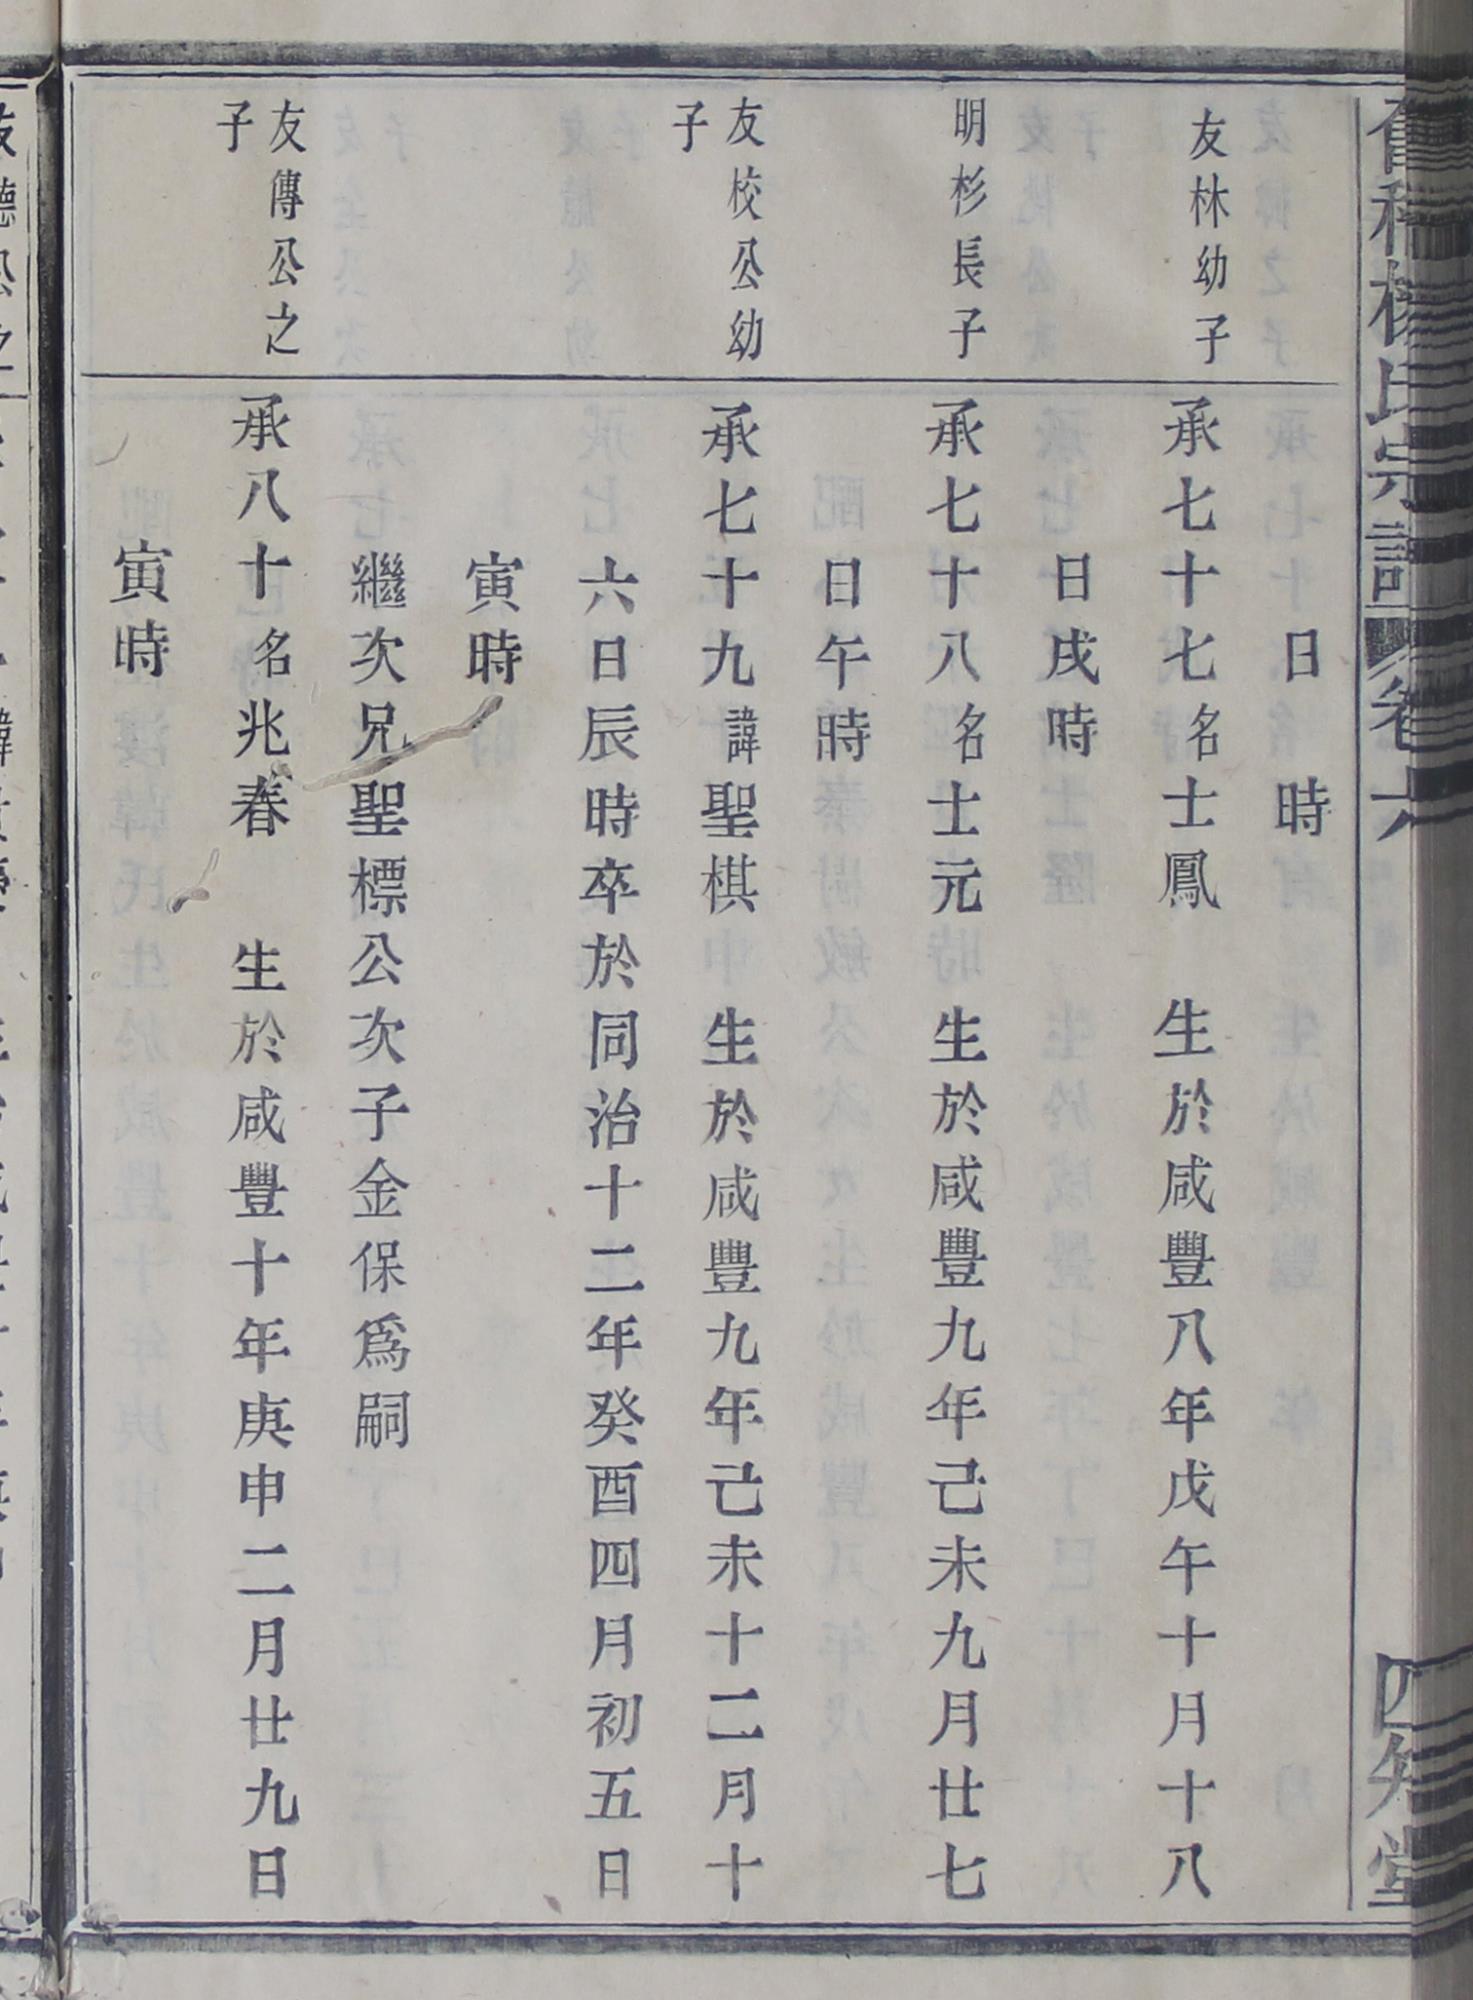 楊氏宗譜 卷六 四知堂
日 時
友林幼子
承七十七名士鳳 生於咸豐八年戊午十月十八
日戌時
明杉長子
承七十八名士元 生於咸豐九年己未九月廿七
日午時
友校公幼
子
承七十九諱聖棋 生於咸豐九年己未十二月十
六日辰時卒於同治十二年癸酉四月初五日
寅時
繼次兄聖標公次子金保爲嗣
友傳公之
子
承八十名兆春 生於咸豐十年庚申二月廿九日
寅時